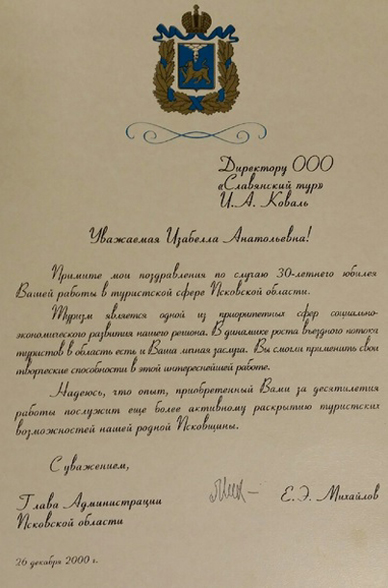 Директору ООО
«Славянский тур»
И.А. Коваль
Уважаемая Изабелла Анатольевна!
Примите мои поздравления по случаю 30-летнего юбилея
Вашей работы в туристской сфере Псковской области.
Туризм является одной из приоритетных сфер социально-
экономического развития нашего региона. В динамике роста въездного потока
туристов в область есть и Ваша личная заслуга. Вы смогли применить свои
творческие способности в этой интереснейшей работе.
Надеюсь, что опыт, приобретенный Вами за десятилетия
работы послужит еще более активному раскрытию туристских
возможностей нашей родной Псковщины.
С уважением,
Глава Администрации
Псковской области
Е.Э. Михайлов
26 декабря 2000 г.